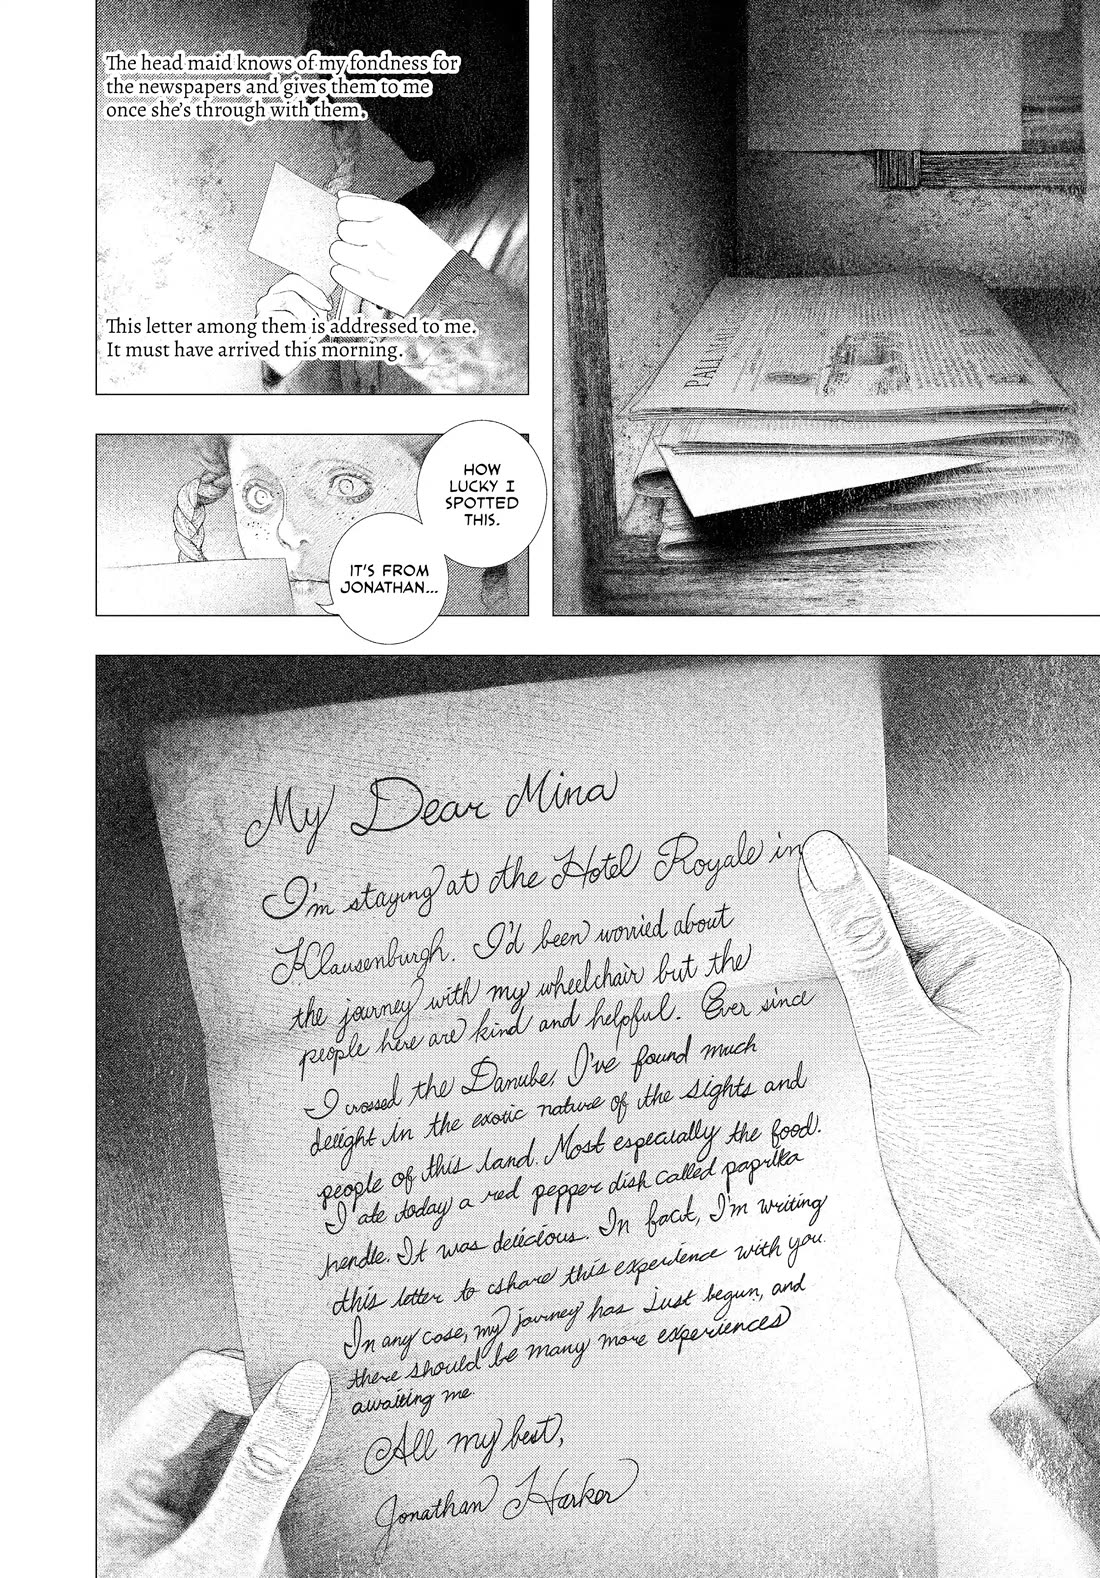 The head maid knows of my fondness for
the newspapers and gives them to me
once she's through with them.
This letter among them is addressed to me.
It must have arrived this morning.
PALL MALL
HOW
LUCKY I
SPOTTED
THIS.
IT'S FROM
JONATHAN...
My Dear Mina
I'm staying at the Hotel Royale in
Klausenburgh. I'd been worried about
the journey with my wheelchair but the
people here are kind and helpful. Ever since
I crossed the Danube, I've found much
delight in the exotic nature of the sights and
people of this land. Most especially the food.
I ate today a red pepper dish called paprika
hendle. It was delicious. In fact, I'm writing
this letter to share this experience with you.
In any case, my journey has just begun, and
there should be many more experiences
awaiting me.
All my best,
Jonathan Harker